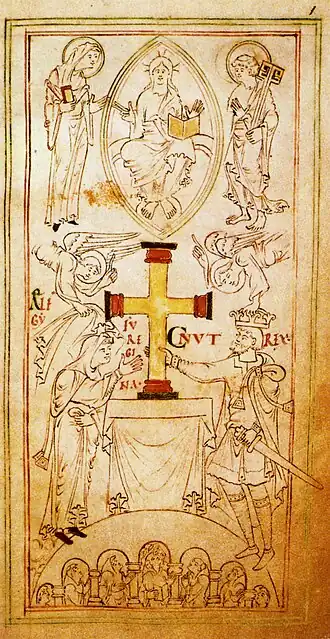 1
ÆLF
GY
FU
RE
GI
NA·
CNVT REX·